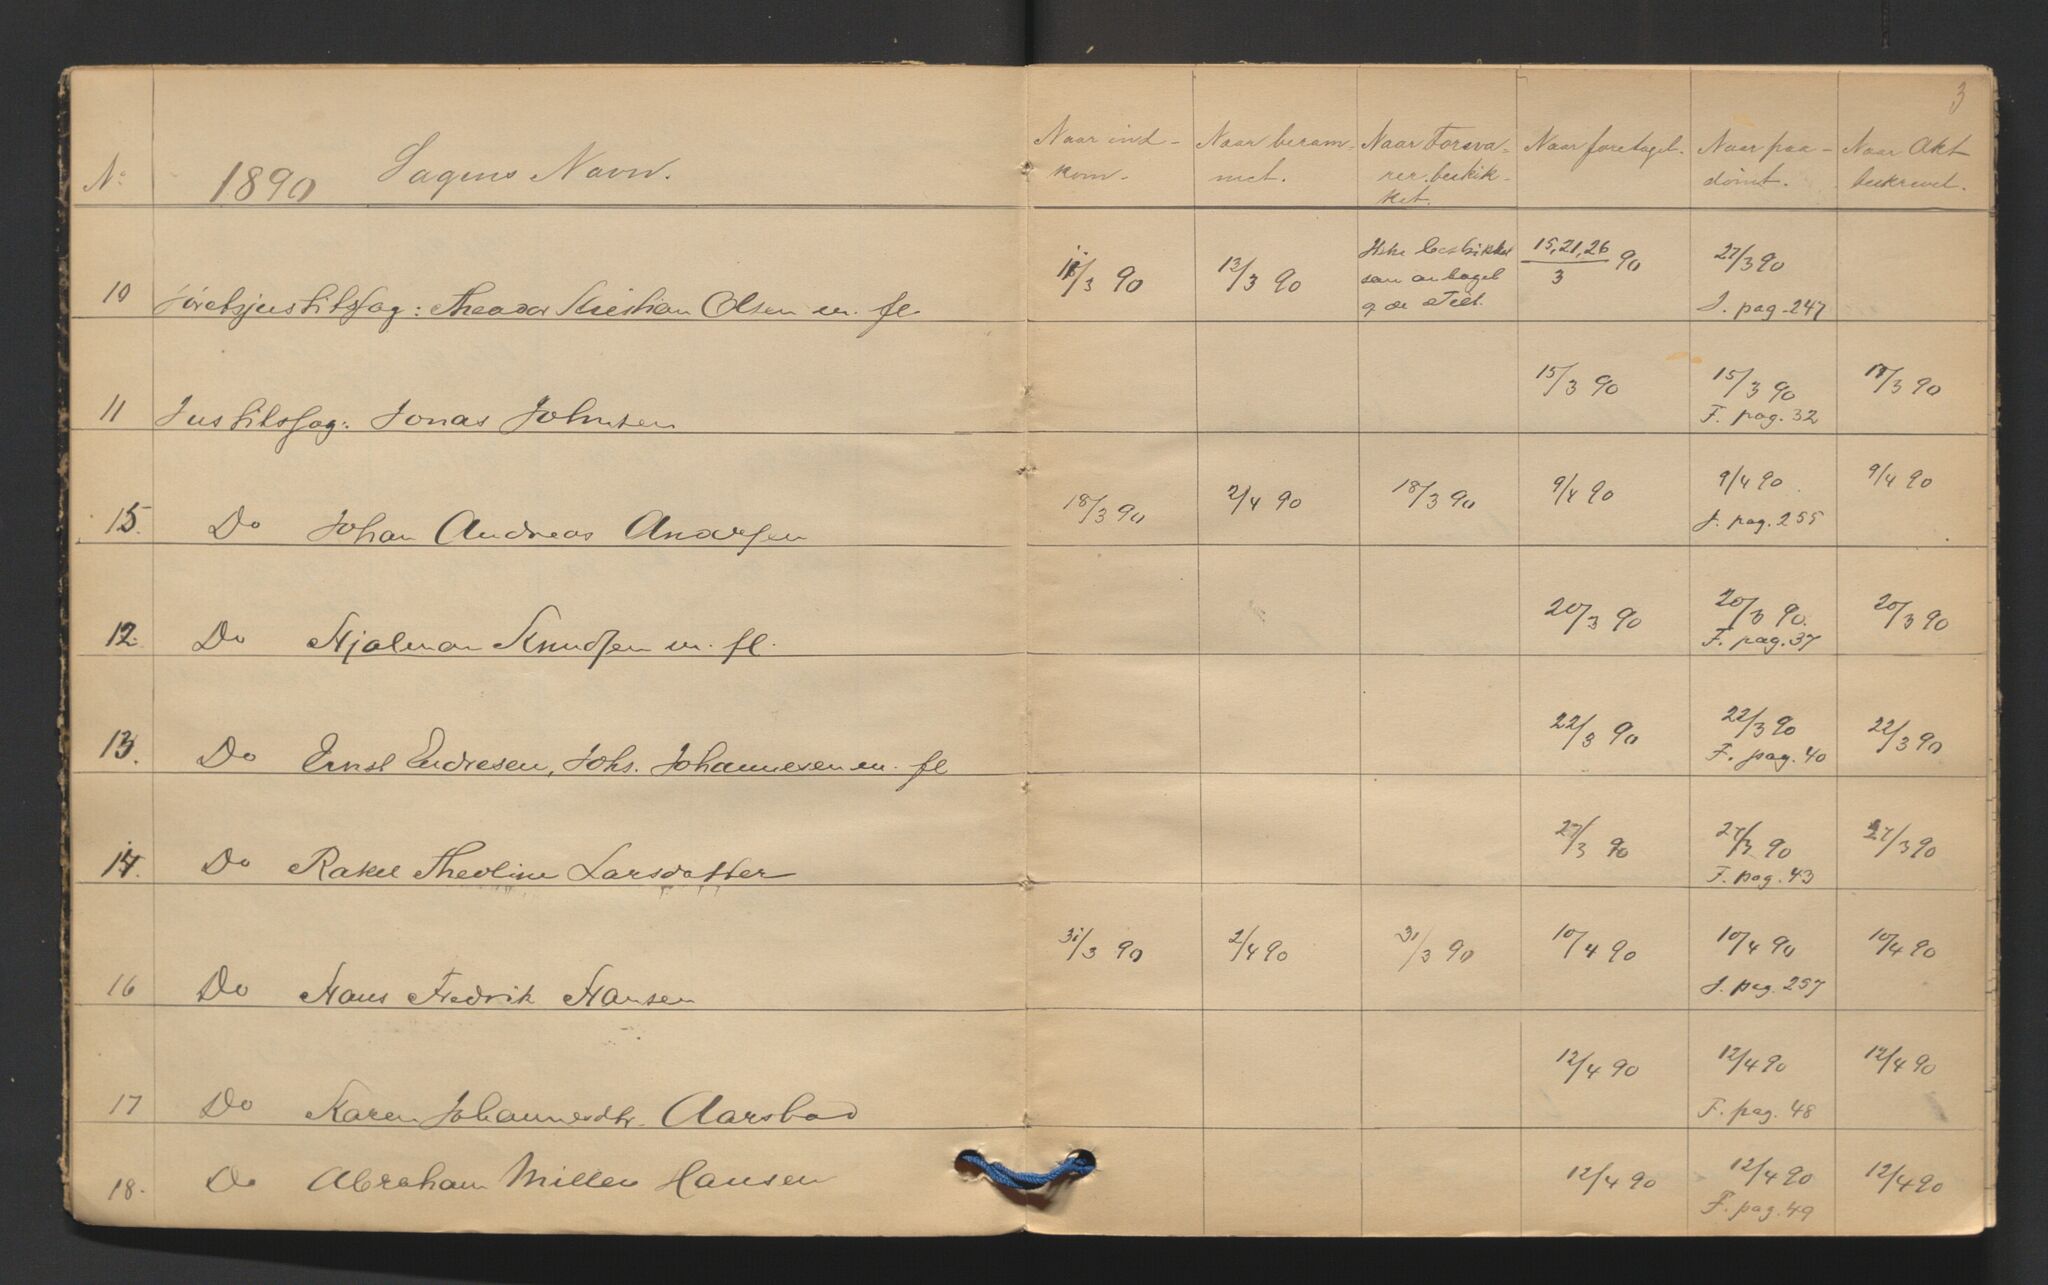 3
No 1890 Sagens Navn. Naar ind- Naar beram- Naar Forsva- Naar foretaget. Naar paa- Naar Akt
kom. met. rer beskik- dömt. beskrevet.
ket.
10 Forhørsjustitssag: Theodor Kristian Olsen m. fl. 11/3 90 13/3 90 Ikke beskikket 15, 21, 26/3 90 27/3 90
som antaget J. pag. 247
11 Justitssag: Jonas Johnsen 15/3 90 15/3 90 17/3 90
F. pag. 32
15. Do Johan Andreas Andersen 18/3 90 2/4 90 18/3 90 9/4 90 9/4 90 9/4 90
J. pag. 255
12. Do Hjalmar Knudsen m. fl. 20/3 90 20/3 90. 20/3 90
F. pag. 37
13. Do Ernst Endresen, Johs. Johannesen m. fl 22/3 90 22/3 90 22/3 90
F. pag. 40
14. Do Rakel Theoline Larsdatter 27/3 90 27/3 90 27/3 90
F. pag. 43
16 Do Hans Fredrik Hansen 31/3 90 2/4 90 31/3 90 10/4 90 10/4 90 10/4 90
J. pag. 257
17 Do Karen Johannesdtr. Aarsbad 12/4 90 12/4 90 12/4 90
F. pag. 48
18. Do Abraham Miller Hansen 12/4 90 12/4 90 12/4 90
F. pag. 49